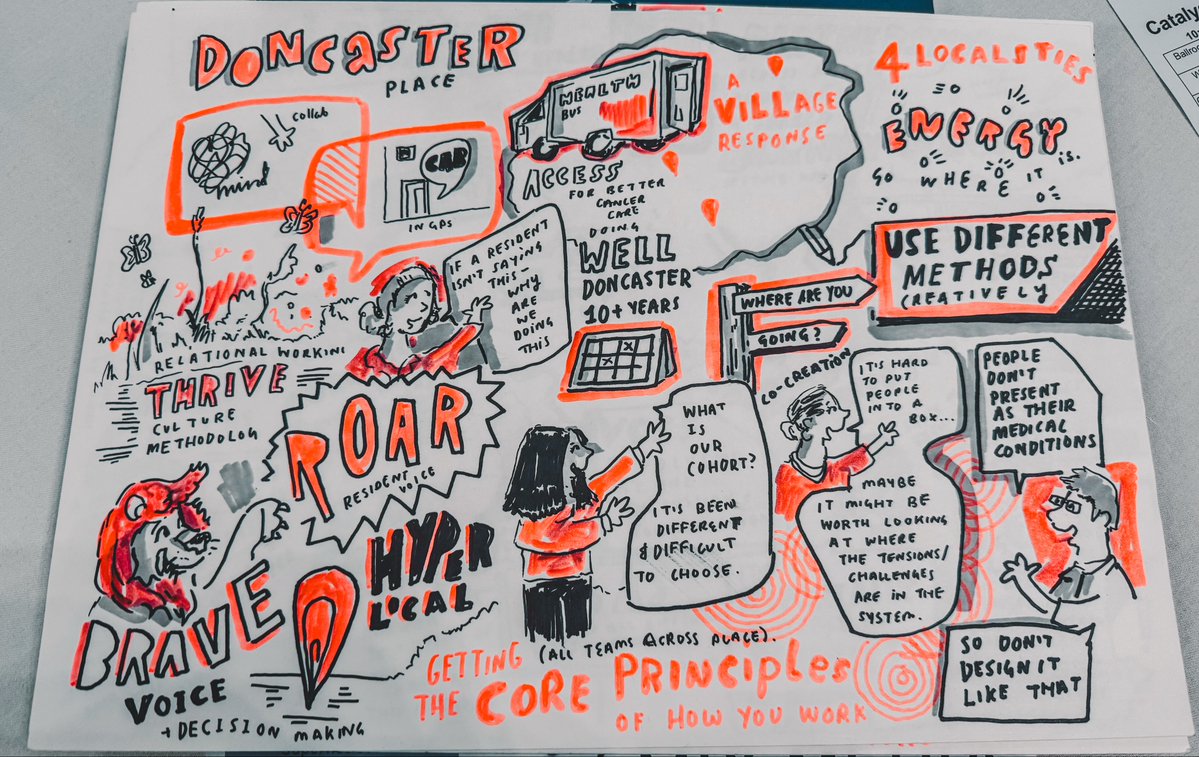 DONCASTER
PLACE
collab
mind
CAB
IN GPs
HEALTH
BUS
A
VILLAGE
RESPONSE
ACCESS
FOR BETTER
CANCER
CARE
DOING
WELL
DONCASTER
10+ YEARS
4 LOCALITIES
ENERGY
IS.
GO WHERE IT
USE DIFFERENT
METHODS
CREATIVELY
WHERE ARE YOU
GOING?
IF A RESIDENT
ISN'T SAYING
THIS –
WHY
ARE
WE
DOING
THIS
RELATIONAL WORKING
THRIVE
CULTURE
METHODOLOG
ROAR
RESIDENT
VOICE
BRAVE
VOICE
+ DECISION MAKING
HYPER
LOCAL
WHAT
IS
OUR
COHORT?
IT'S BEEN
DIFFERENT
& DIFFICULT
TO CHOOSE.
CO-CREATION
IT'S HARD
TO PUT
PEOPLE
INTO A
BOX...
MAYBE
IT MIGHT BE
WORTH LOOKING
AT WHERE
THE TENSIONS/
CHALLENGES
ARE IN THE
SYSTEM.
PEOPLE
DON'T
PRESENT
AS THEIR
MEDICAL
CONDITIONS
SO DON'T
DESIGN IT
LIKE THAT
GETTING (ALL TEAMS ACROSS PLACE).
THE CORE PRINCIPLES
OF HOW YOU WORK
Cataly